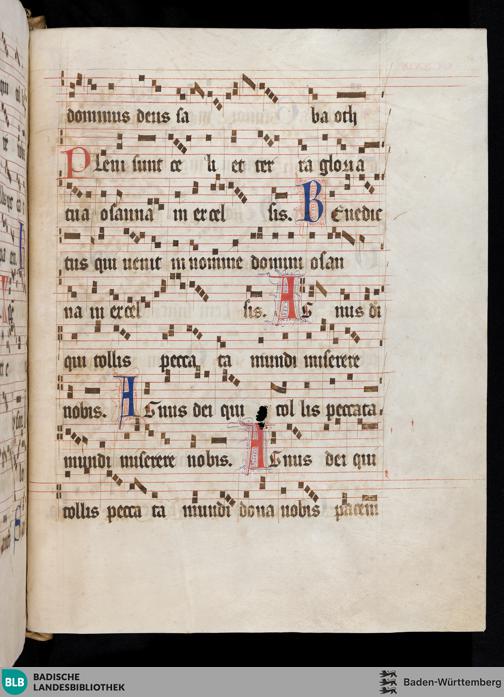 dominus deus sa ba oth
Pleni sunt ce li et ter ra gloria
tua osanna in excel sis. Benedic
tus qui uenit in nomine domini osan
na in excel sis. Ag nus di
qui tollis pecca ta mundi miserere
nobis. Agnus dei qui tol lis peccata
mundi miserere nobis. Agnus dei qui
tollis pecca ta mundi dona nobis pacem
BLB BADISCHE
LANDESBIBLIOTHEK
Baden-Württemberg